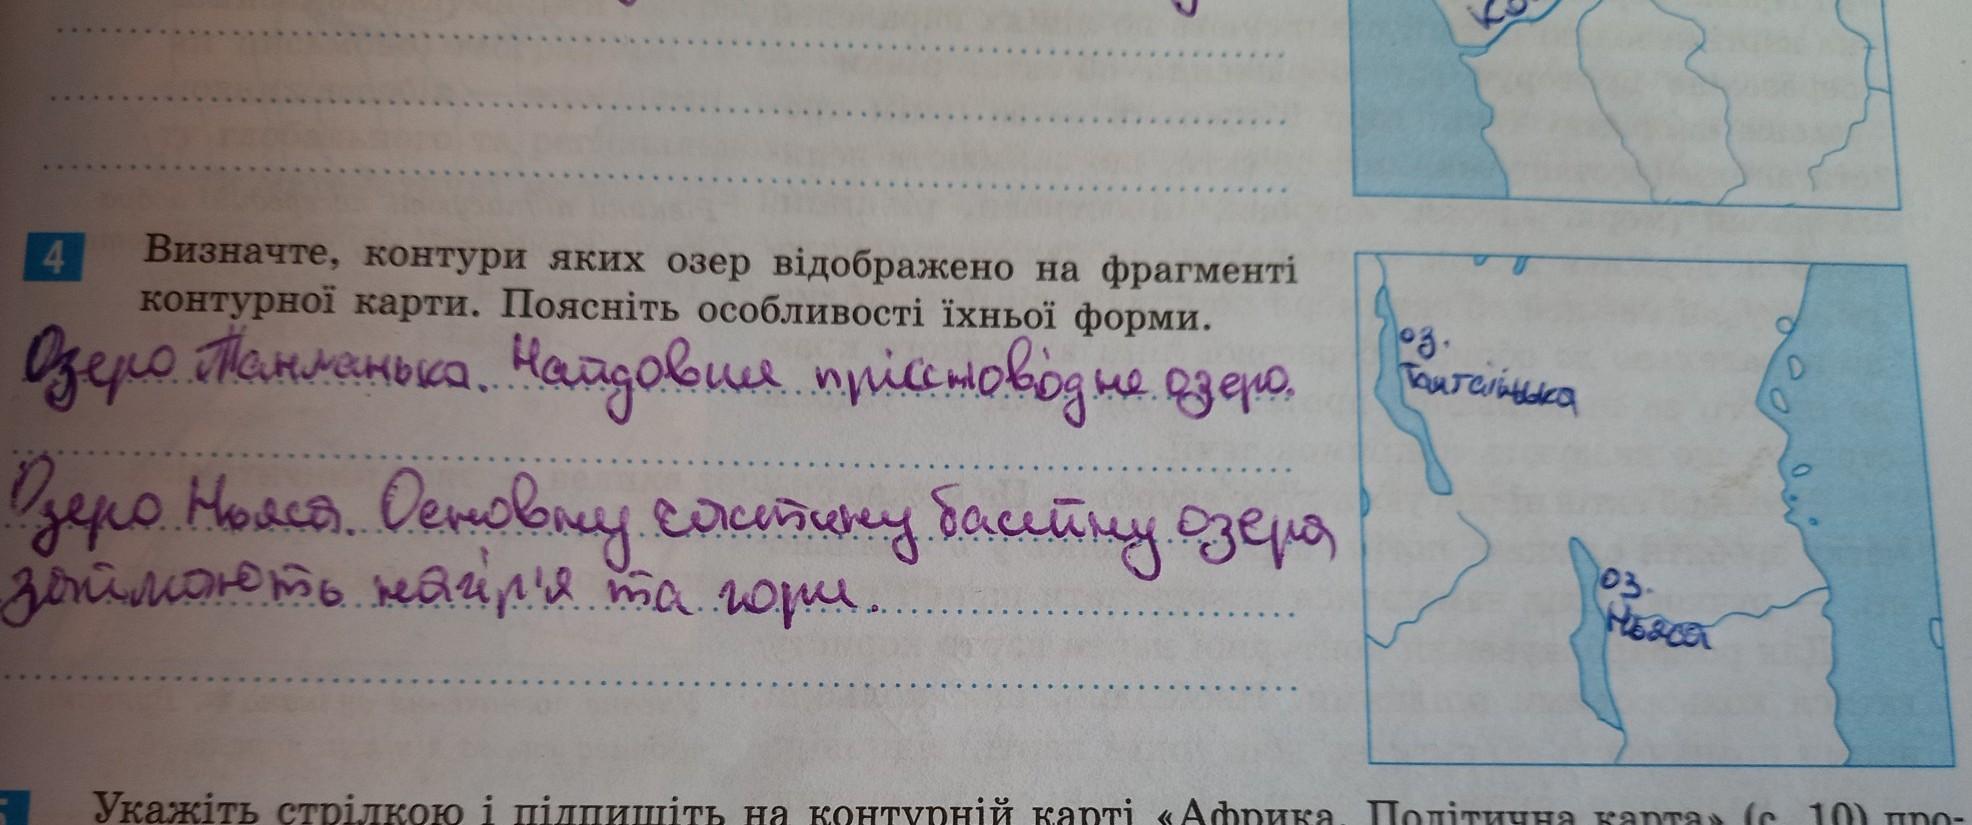 4 Визначте, контури яких озер відображено на фрагменті
контурної карти. Поясніть особливості їхньої форми.
Озеро Танганьїка. Найдовше прісноводне озеро.
Озеро Ньяса. Основну частину басейну озера
займають нагір'я та гори.
оз.
Танганьїка
оз.
Ньяса
Укажіть стрілкою і підпишіть на контурній карті «Африка. Політична карта» (с. 10) про-